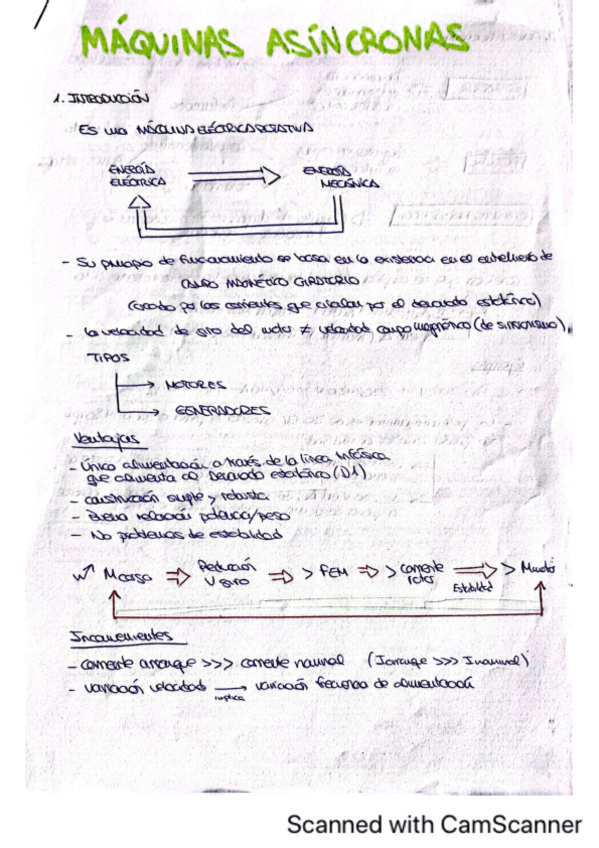 MÁQUINAS ASÍNCRONAS
1. INTRODUCCIÓN
ES UNA MÁQUINA ELÉCTRICA ROTATIVA
ENERGÍA ELÉCTRICA
ENERGÍA MECÁNICA
- Su principio de funcionamiento se basa en la existencia en el entrehierro de
CAMPO MAGNÉTICO GIRATORIO
(creado por las corrientes que circulan por el devanado estatórico)
- La velocidad de giro del rotor ≠ velocidad campo magnético (de SINCRONISMO)
TIPOS
MOTORES
GENERADORES
Ventajas
- Única alimentación a través de la línea trifásica
que alimenta al devanado estatórico (D1)
- construcción simple y robusta
- Buena relación potencia/peso
- No problemas de estabilidad
M carga ⇒ Reducción V giro ⇒ > FEM ⇒ > corriente rotor ⇒ Estabilidad > Mmotor
Inconvenientes
- corriente arranque >>> corriente nominal (Iarranque >>> Inominal)
- variación velocidad → implica variación frecuencia de alimentación
Scanned with CamScanner